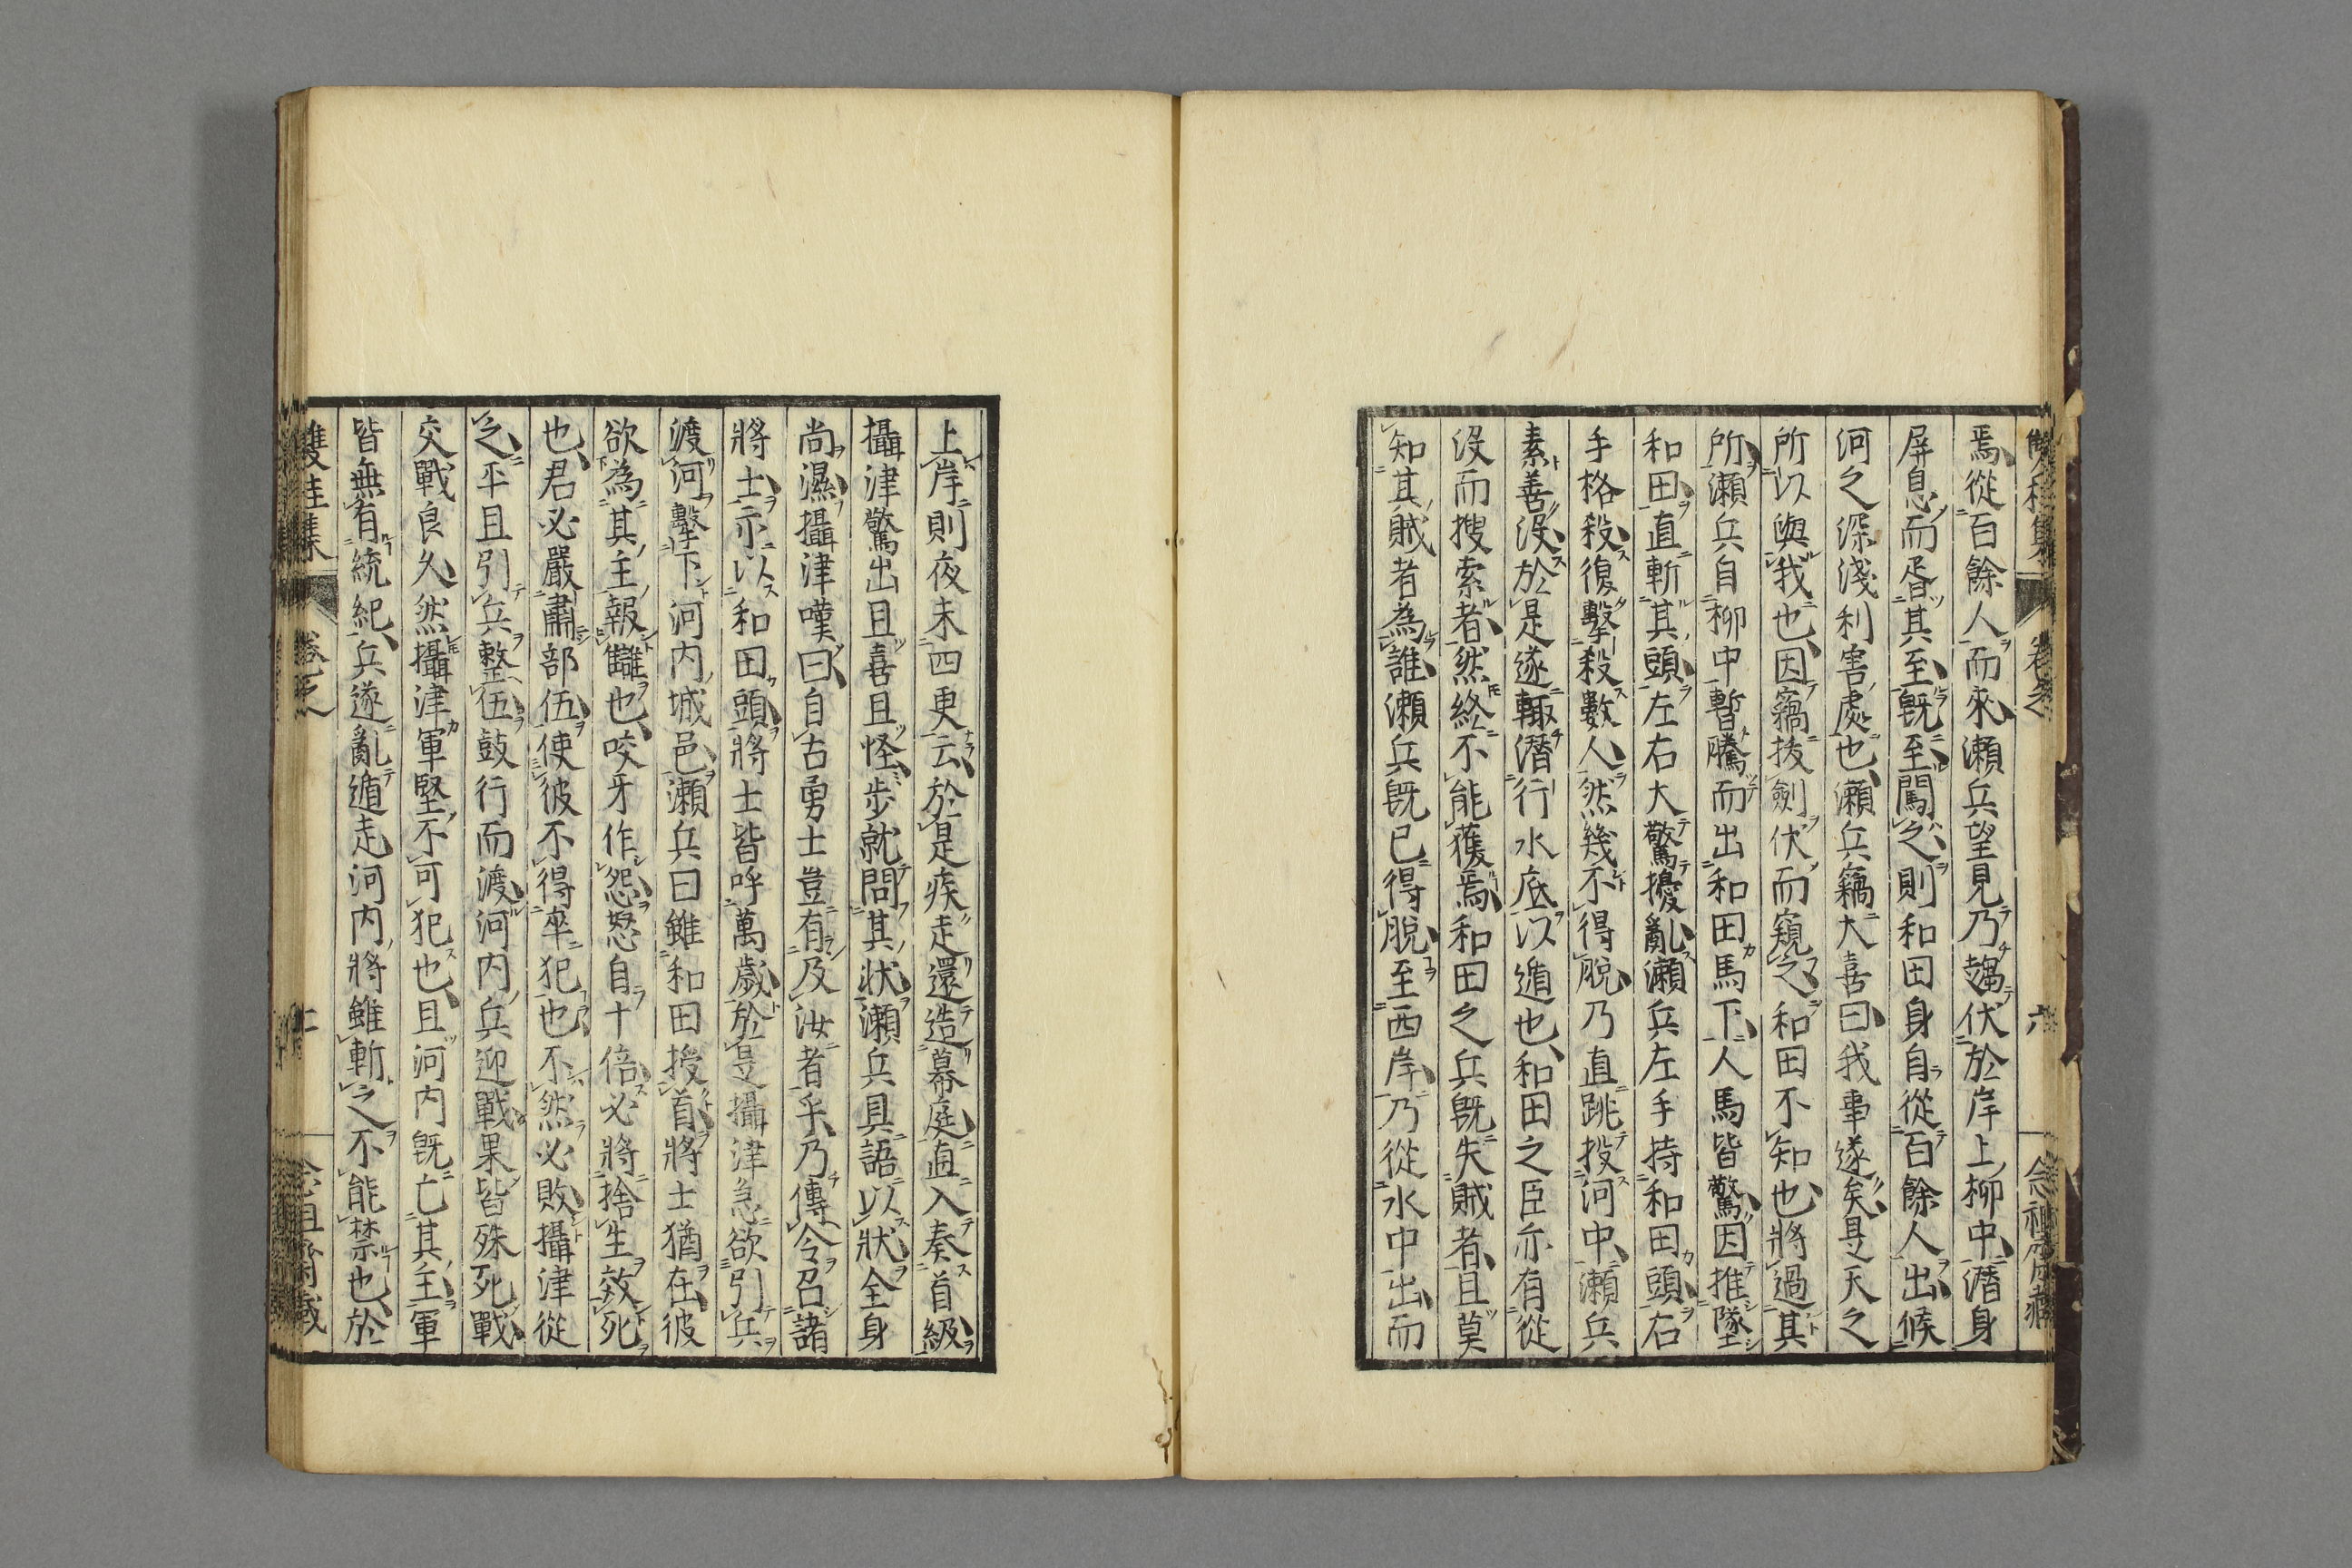 焉從百餘人而來瀬兵望見乃趨伏於岸上柳中潛身
屏息而胥其至既至闖之則和田身自從百餘人出候
河之深淺利害處也瀬兵竊大喜曰我事遂矣是天之
所以與我也因竊拔劍伏而窺之和田不知也將過其
所瀬兵自柳中暫騰而出和田馬下人馬皆驚因推墜
和田直斬其頭左右大驚擾亂瀬兵左手持和田頭右
手格殺復擊殺數人然幾不得脫乃直跳投河中瀬兵
素善沒於是遂輙潛行水底以遁也和田之臣亦有從
沒而搜索者然終不能獲焉和田之兵既失賊者且莫
知其賊者為誰瀬兵既已得脫至西岸乃從水中出而
上岸則夜未四更云於是疾走還造幕庭直入奏首級
攝津驚出且喜且怪步就問其狀瀬兵具語以狀全身
尚濕攝津嘆曰自古勇士豈有及汝者乎乃傳令召諸
將士示以和田頭將士皆呼萬歲於是攝津急欲引兵
渡河擊下河内城邑瀬兵曰雖和田授首將士猶在彼
欲為其主報讎也咬牙作怨怒自十倍必將捨生效死
也君必嚴肅部伍使彼不得卒犯也不然必敗攝津從
之平且引兵整伍鼓行而渡河内兵迎戰果皆殊死戰
交戰良久然攝津軍堅不可犯也且河内既亡其主軍
皆無有統紀兵遂亂遁走河内將雖斬之不能禁也於
雙桂集 卷之